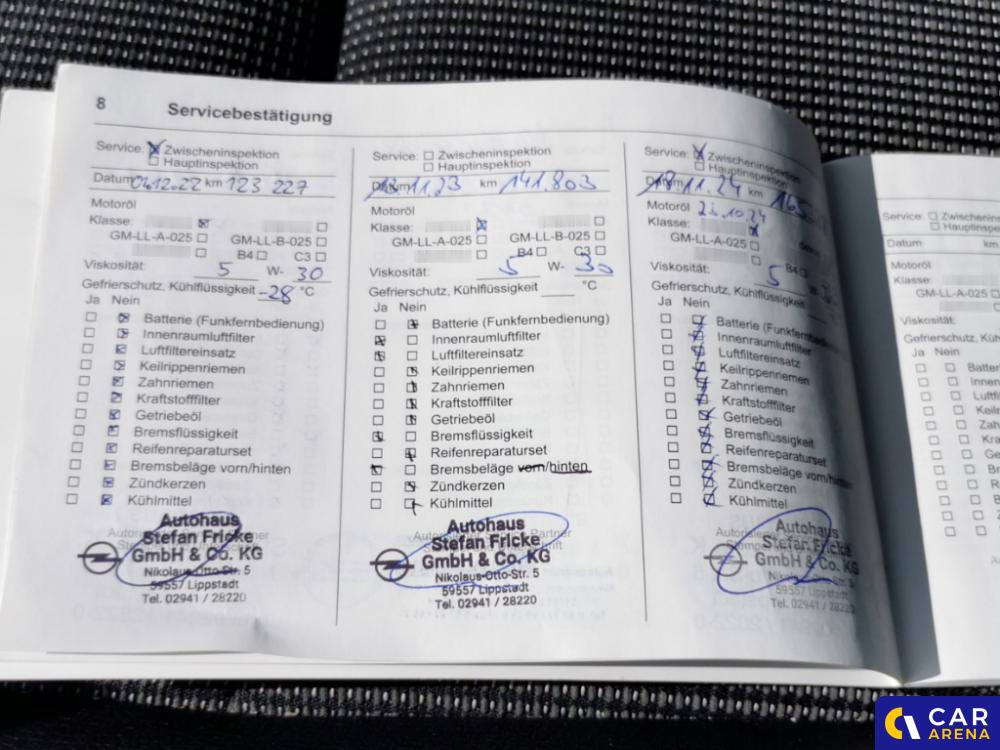 8 Servicebestätigung
Service: Zwischeninspektion
Hauptinspektion
Datum 04.12.22 km 123 227
Motoröl
Klasse:
GM-LL-A-025 GM-LL-B-025
B4 C3
Viskosität: 5 W- 30
Gefrierschutz, Kühlflüssigkeit -28 °C
Ja Nein
Batterie (Funkfernbedienung)
Innenraumluftfilter
Luftfiltereinsatz
Keilrippenriemen
Zahnriemen
Kraftstofffilter
Getriebeöl
Bremsflüssigkeit
Reifenreparaturset
Bremsbeläge vorn/hinten
Zündkerzen
Kühlmittel
Autohaus
Stefan Fricke
GmbH & Co. KG
Nikolaus-Otto-Str. 5
59557 Lippstadt
Tel. 02941 / 28220
Service: Zwischeninspektion
Hauptinspektion
Datum 11.23 km 141.803
Motoröl
Klasse:
GM-LL-A-025 GM-LL-B-025
B4 C3
Viskosität: 5 W- 30
Gefrierschutz, Kühlflüssigkeit °C
Ja Nein
Batterie (Funkfernbedienung)
Innenraumluftfilter
Luftfiltereinsatz
Keilrippenriemen
Zahnriemen
Kraftstofffilter
Getriebeöl
Bremsflüssigkeit
Reifenreparaturset
Bremsbeläge vorn/hinten
Zündkerzen
Kühlmittel
Autohaus
Stefan Fricke
GmbH & Co. KG
Nikolaus-Otto-Str. 5
59557 Lippstadt
Tel. 02941 / 28220
Service: Zwischeninspektion
Hauptinspektion
Datum 18.11.24 km
Motoröl
Klasse:
GM-LL-A-025
B4
Viskosität: 5
Gefrierschutz, Kühlflüssigkeit
Ja Nein
Batterie (Funkfernbedienung
Innenraumluftfilter
Luftfiltereinsatz
Keilrippenriemen
Zahnriemen
Kraftstofffilter
Getriebeöl
Bremsflüssigkeit
Reifenreparaturset
Bremsbeläge vorn/hinten
Zündkerzen
Kühlmittel
Autohaus
Stefan Fricke
GmbH & Co. KG
Nikolaus-Otto-Str. 5
59557 Lippstadt
Tel. 02941 / 28220
Service: Zwischeninspe
Hauptinspe
Datum km
Motoröl
Klasse:
GM-LL-A-025
Viskosität:
Gefrierschutz, Küh
Ja Nein
CAR
ARENA